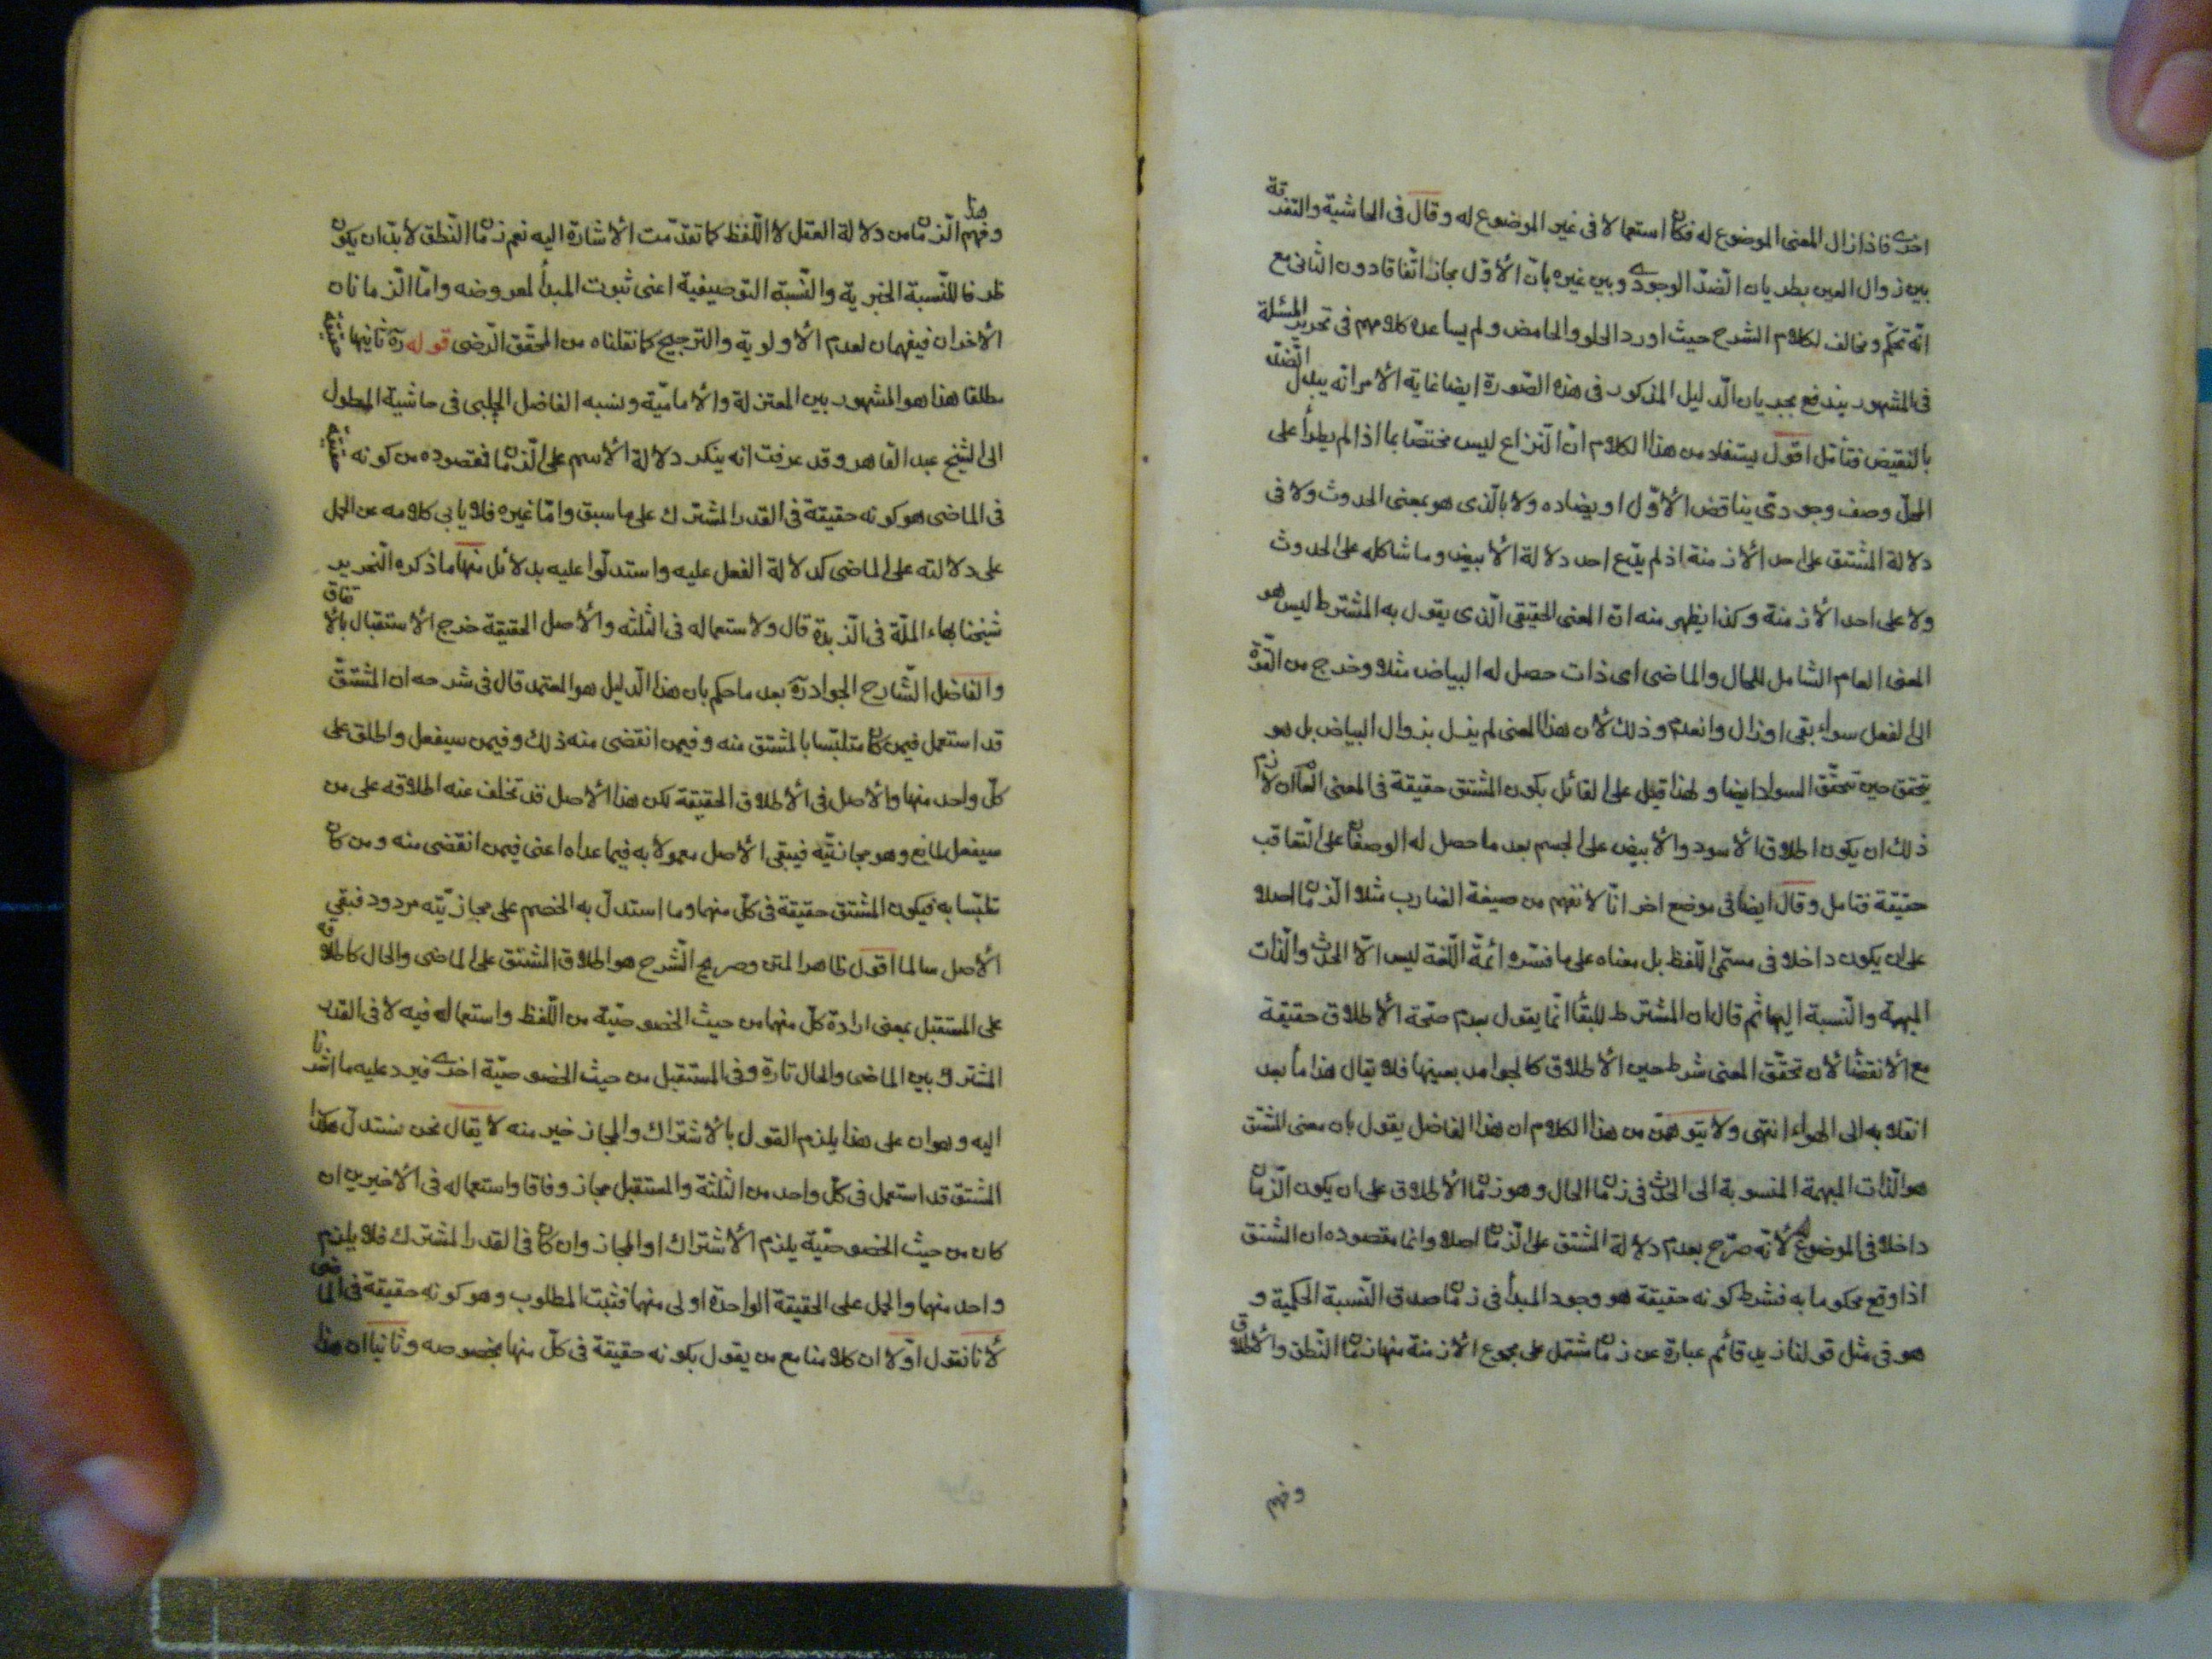 اخرى فاذا زال المعنى الموضوع له فكان استعمالا فى غير الموضوع له وقال فى الحاشية والتفرقة
بين زوال العين بطريان الضدّ الوجودى وبين غيره بانّ الأوّل مجاز اتّفاقا دون الثّانى مع
انّه تحكّم ومخالف لكلام الشرح حيث اورد الحلو والحامض ولم يساعده كلامهم فى تحرير المسئلة
فى المشهور يندفع بجريان الدّليل المذكور فى هذه الصّورة ايضا غاية الأمر انّه يبدل الضّدّ
بالنقيض فتأمّل اقول يستفاد من هذا الكلام انّ النّزاع ليس مختصّا بما اذا لم يطرأ على
المحلّ وصف وجودىّ يناقض الأوّل او يضاده ولا بالّذى هو بمعنى الحدوث ولا فى
دلالة المشتق على احد الأزمنة اذ لم يدّع احد دلالة الأبيض وما شاكله على الحدوث
ولا على احد الأزمنة وكذا يظهر منه ان المعنى الحقيقى الّذى يقول به المشترط ليس هو
المعنى العام الشامل للحال والماضى اى ذات حصل له البياض مثلا وخرج من القوّة
الى الفعل سواء بقى او زال وانعدم وذلك لأن هذا المعنى لم يزل بزوال البياض بل هو
يتحقق حين تحقّق السواد ايضا ولهذا قيل على القائل بكون المشتق حقيقة فى المعنى العام ان لازم
ذلك ان يكون اطلاق الأسود والأبيض على الجسم بعد ما حصل له الوصفان على التّعاقب
حقيقة فتامل وقال ايضا فى موضع اخر انّا لا نفهم من صيغة الضارب مثلا الزّمان اصلا
على ان يكون داخلا فى مسمّى اللّفظ بل معناه على ما فسّره ائمّة اللّغة ليس الّا الحدث والذّات
المبهمة والنّسبة اليها ثم قال ان المشترط للبقاء انّما يقول بعدم صحّة الأطلاق حقيقة
مع الأنقضاء لأن تحقّق المعنى شرط حين الأطلاق كالجوامد بعينها فلا يقال هذا ماء بعد
انقلابه الى الهواء انتهى ولا يتوهمّن من هذا الكلام ان هذا الفاضل يقول بان معنى المشتق
هو الذّات المبهمة المنسوبة الى الحدث فى زمان الحال وهو زمان الأطلاق على ان يكون الزّمان
داخلا فى الموضوع له لأنّه صرّح بعدم دلالة المشتق على الزّمان اصلا وانما مقصوده ان المشتق
اذا وقع محكوما به فشرط كونه حقيقة هو وجود المبدأ فى زمان صدق النّسبة الحكمية و
هو فى مثل قولنا زيد قائم عبارة عن زمان مشتمل على مجموع الأزمنة منها زمان النّطق والأطلاق
وفهم
وفهم هذا الزّمان من دلالة العقل لا اللّفظ كما تقدّمت الأشارة اليه نعم زمان النّطق لا بدّ ان يكون
ظرفا للنّسبة الخبرية والنّسبة التوصيفية اعنى ثبوت المبدأ لمعروضه وامّا الزّمانان
الأخران فيفهمان لعدم الأولوية والترجيح كما نقلناه من المحقّق الرّضى قوله ره ثانيها حقيقة
مطلقا هذا هو المشهور بين المعتزلة والأماميّة ونسبه الفاضل الچلبى فى حاشية المطول
الى الشيخ عبد القاهر وقد عرفت انه ينكر دلالة الأسم على الزّمان فمقصوده من كونه حقيقة
فى الماضى هو كونه حقيقة فى القدر المشترك على ما سبق وامّا غيره فلا يابى كلامه عن الحمل
على دلالته على الماضى كدلالة الفعل عليه واستدلّوا عليه بدلائل منها ما ذكره النّحرير
شيخنا بهاء الملّة فى الزّبدة قال ولاستعماله فى الثلثه والأصل الحقيقة خرج الأستقبال بالأتفاق
والفاضل الشّارح الجواد ره بعد ما حكم بان هذا الدّليل هو المعتمد قال فى شرحه ان المشتقّ
قد استعمل فيمن كان متلبّسا بالمشتق منه وفيمن انقضى منه ذلك وفيمن سيفعل واطلق على
كلّ واحد منها والأصل فى الأطلاق الحقيقة لكن هذا الأصل قد تخلف عنه اطلاقه على من
سيفعل لمانع وهو مجازيّته فيبقى الأصل معمولا به فيما عداه اعنى فيمن انقضى منه ومن كان
تلبّسا به فيكون المشتق حقيقة فى كلّ منهما وما استدلّ به الخصم على مجازيّته مردود فبقي
الأصل سالما اقول ظاهر المتن وصريح الشّرح هو اطلاق المشتق على الماضى والحال كاطلاقه
على المستقبل بمعنى ارادة كلّ منهما من حيث الخصوصيّة من اللّفظ واستعماله فيه لا فى القدر
المشترك بين الماضى والحال تارة وفى المستقبل من حيث الخصوصيّة اخرى فيرد عليه ما اشرنا
اليه وهو ان على هذا يلزم القول بالأشتراك والمجاز خير منه لا يقال نحن نستدلّ هكذا
المشتق قد استعمل فى كلّ واحد من الثلثة والمستقبل مجاز وفاقا واستعماله فى الأخيرين ان
كان من حيث الخصوصيّة يلزم الأشتراك او المجاز وان كان فى القدر المشترك فلا يلزم
واحد منهما والحمل على الحقيقة الواحدة اولى منهما فثبت المطلوب وهو كونه حقيقة فى الماضى
لأنا نقول اوّلا ان كلامنا مع من يقول بكونه حقيقة فى كلّ منها بخصوصه وثانيا ان هذا